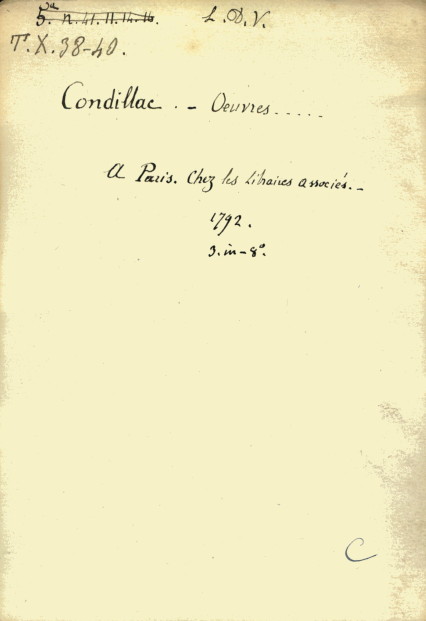 L. D. V.
T. X. 38-40.
Condillac . - Oeuvres.....
A Paris. Chez les Libraires associés. -
1792.
3. in-8º.
C